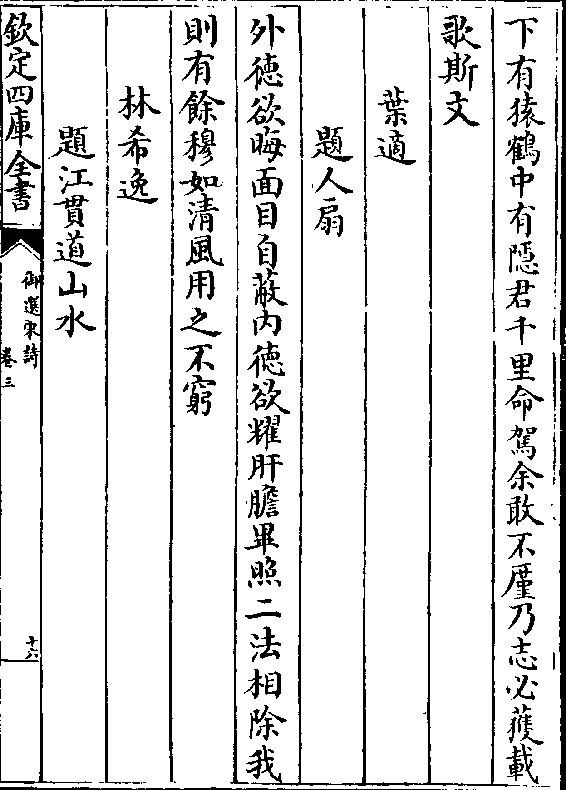 下有猿鶴中有隱君千里命駕余敢不厪乃志必獲載
歌斯文
葉適
題人扇
外徳欲晦面目自蔽内徳欲耀肝膽畢照二法相除我
則有餘穆如清風用之不窮
林希逸
題江貫道山水
欽定四庫全書
御選宋詩
卷三
十六